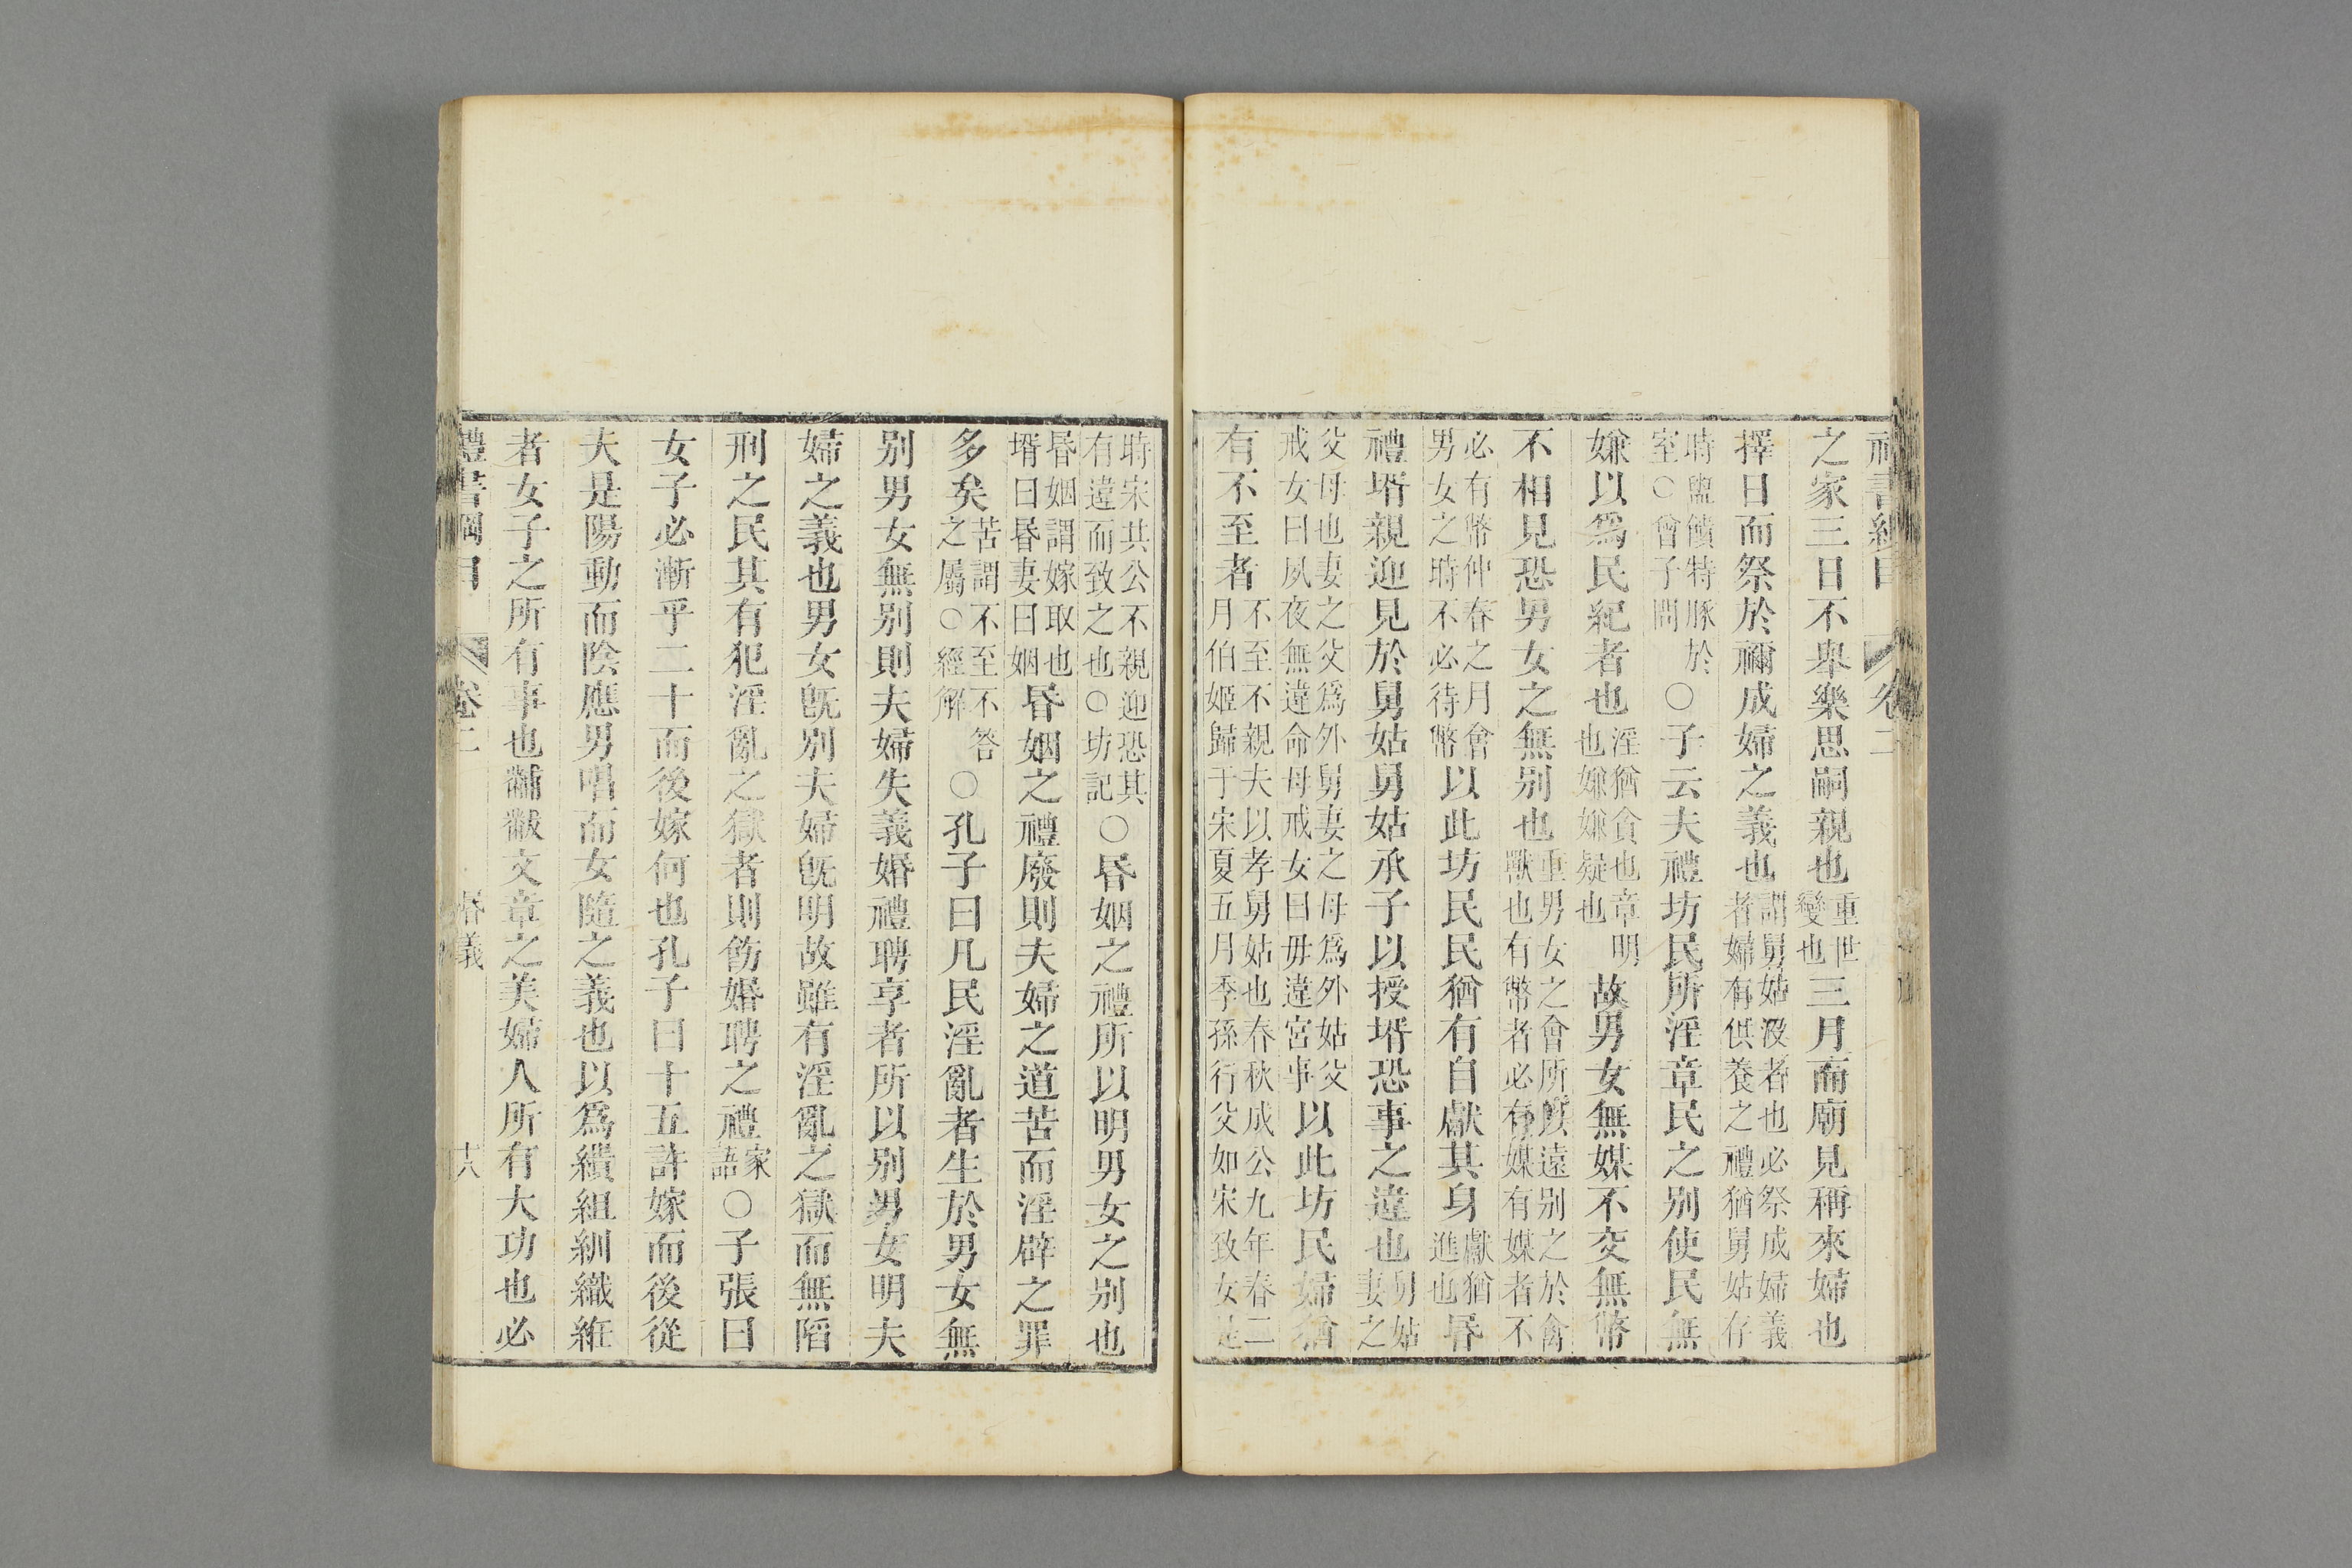 禮書綱目 卷二
之家三日不舉樂思嗣親也重世變也三月而廟見稱來婦也
擇日而祭於禰成婦之義也謂舅姑沒者也必祭成婦義者婦有供養之禮猶舅姑存
時盥饋特豚於室○曾子問○子云夫禮坊民所淫章民之别使民無
嫌以爲民紀者也淫猶貪也章明也嫌嫌疑也故男女無媒不交無幣
不相見恐男女之無别也重男女之會所以遠别之於禽獸也有幣者必有媒有媒者不
必有幣仲春之月會男女之時不必待幣以此坊民民猶有自獻其身獻猶進也昬
禮壻親迎見於舅姑舅姑承子以授壻恐事之違也舅姑妻之
父母也妻之父爲外舅妻之母爲外姑父戒女曰夙夜無違命母戒女曰毋違宮事以此坊民婦猶
有不至者不至不親夫以孝舅姑也春秋成公九年春二月伯姬歸于宋夏五月季孫行父如宋致女是
時宋共公不親迎恐其有違而致之也○坊記○昬姻之禮所以明男女之别也
昬姻謂嫁取也壻曰昬妻曰姻昬姻之禮廢則夫婦之道苦而淫辟之罪
多矣苦謂不至不答之屬○經解○孔子曰凡民淫亂者生於男女無
别男女無别則夫婦失義婚禮聘享者所以别男女明夫
婦之義也男女旣别夫婦旣明故雖有淫亂之獄而無陷
刑之民其有犯淫亂之獄者則飭婚聘之禮家語○子張曰
女子必漸乎二十而後嫁何也孔子曰十五許嫁而後從
夫是陽動而陰應男唱而女隨之義也以爲績組紃織維
者女子之所有事也黼黻文章之美婦人所有大功也必
禮書綱目 卷二 昏義 十八